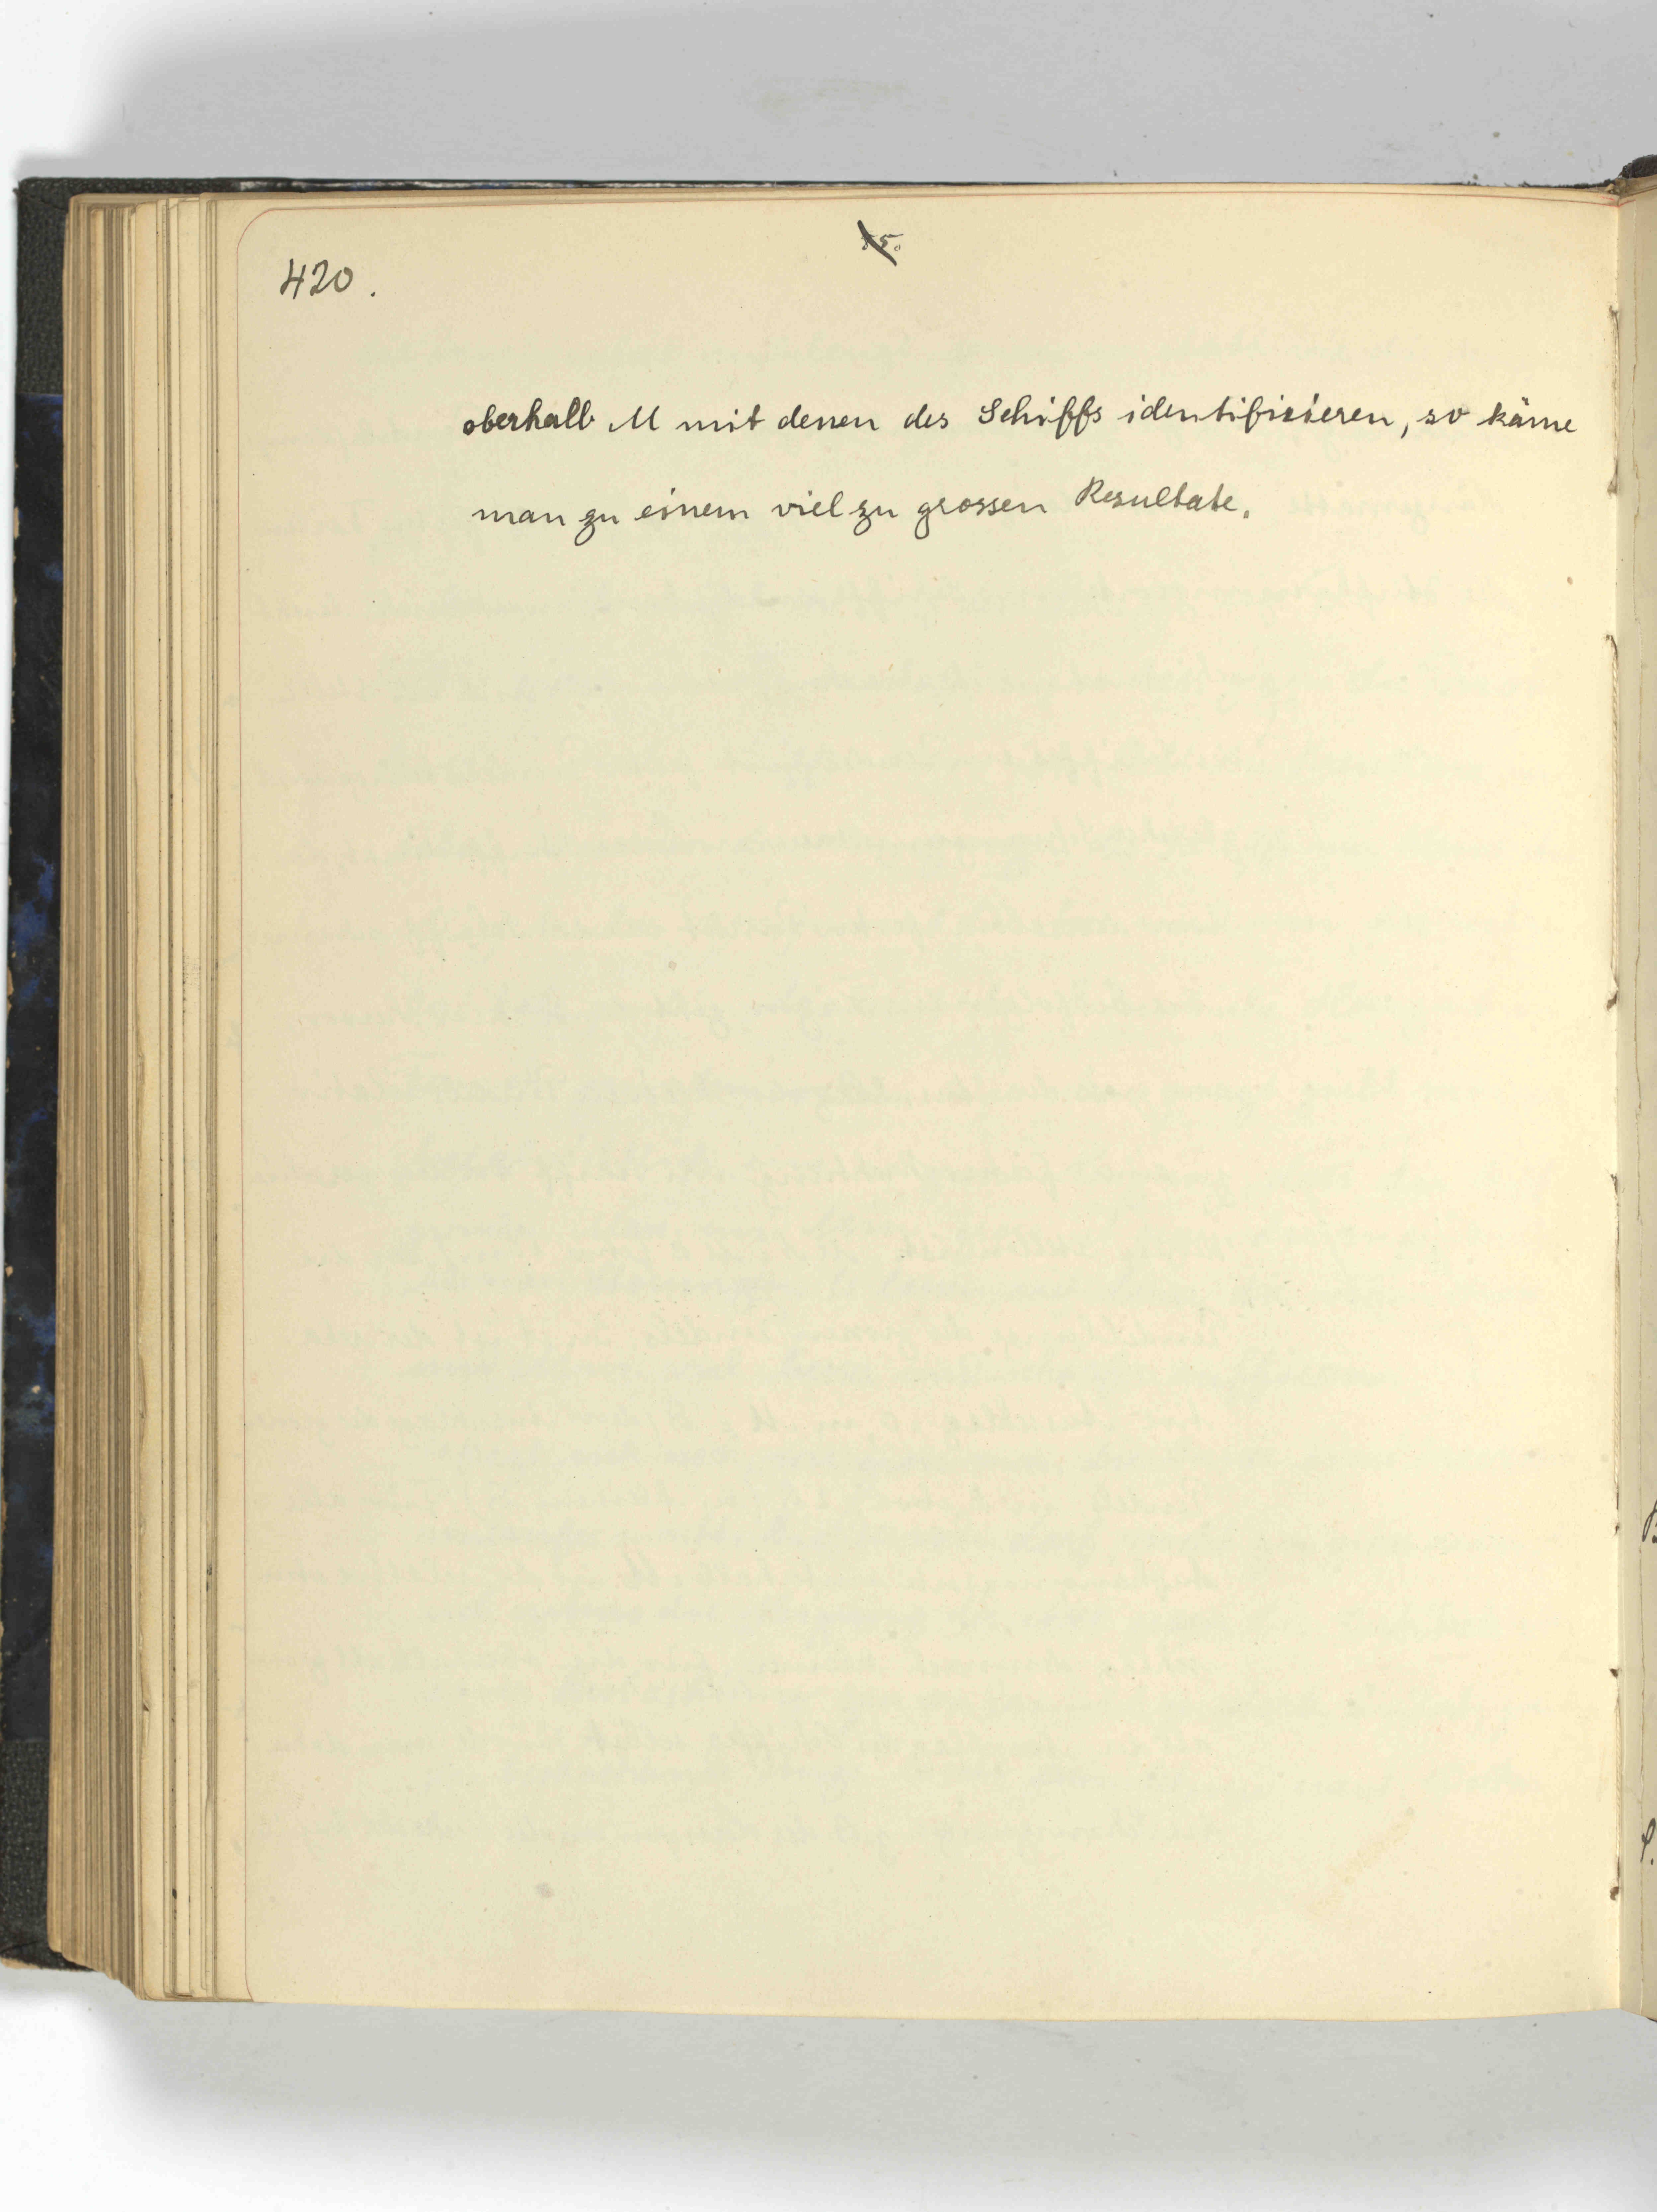 420.
oberhalb M mit denen des Schiffs identifizieren, so käme
man zu einem viel zu grossen Resultate.